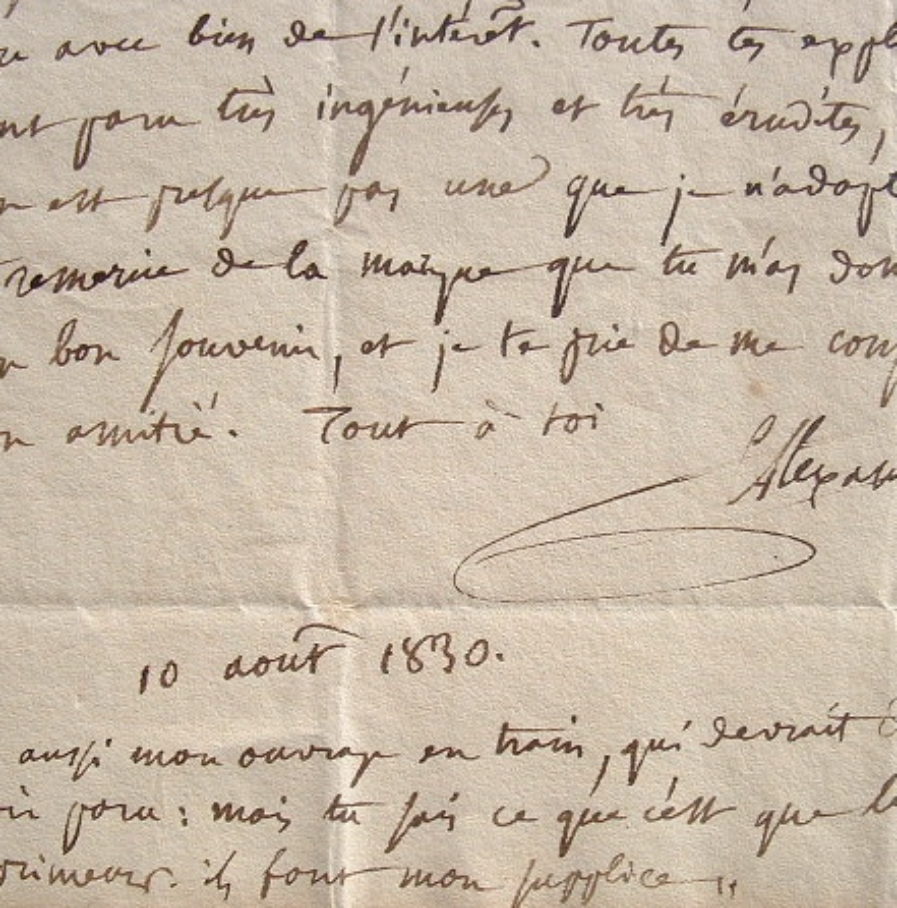 avec bien de l'intérêt. Toutes tes expl
nt paru très ingénieuses et très érudites,
n est presque pas une que je n'adopt
remercie de la marque que tu m'as don
n bon souvenir, et je te prie de me cons
n amitié. Tout à toi
Alexan
10 août 1830.
aussi mon ouvrage en train, qui devrait
oir paru : mais tu sais ce que c'est que le
primeurs. ils font mon supplice